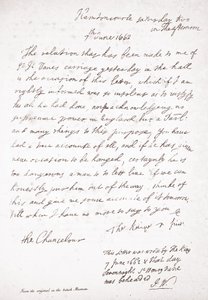 Hamtoncourte saturday two
in the afternoon
7th June 1662
The relation that has been made to me of
Sr H. Vanes carriage yesterday in the hall
is the occasion of this letter, which if I am
rightly informed was so insolent as to justify
all he had done, acknowledging no
supreame power in England but a Parl.
and many things to this purpose, You have
had a true account of all, and if he has given
new occasion to be hanged, certaynly he is
too dangerous a man to lett live, if we can
honestly put him out of the way, thinke of
this and give me some accounte of it tomorrow
till when I have no more to say to you
C.
the Chancelour
This letter was wrote by the King
7 June 1662 & that day
Sr Henry Vane
was beheaded
From the original in the British Museum